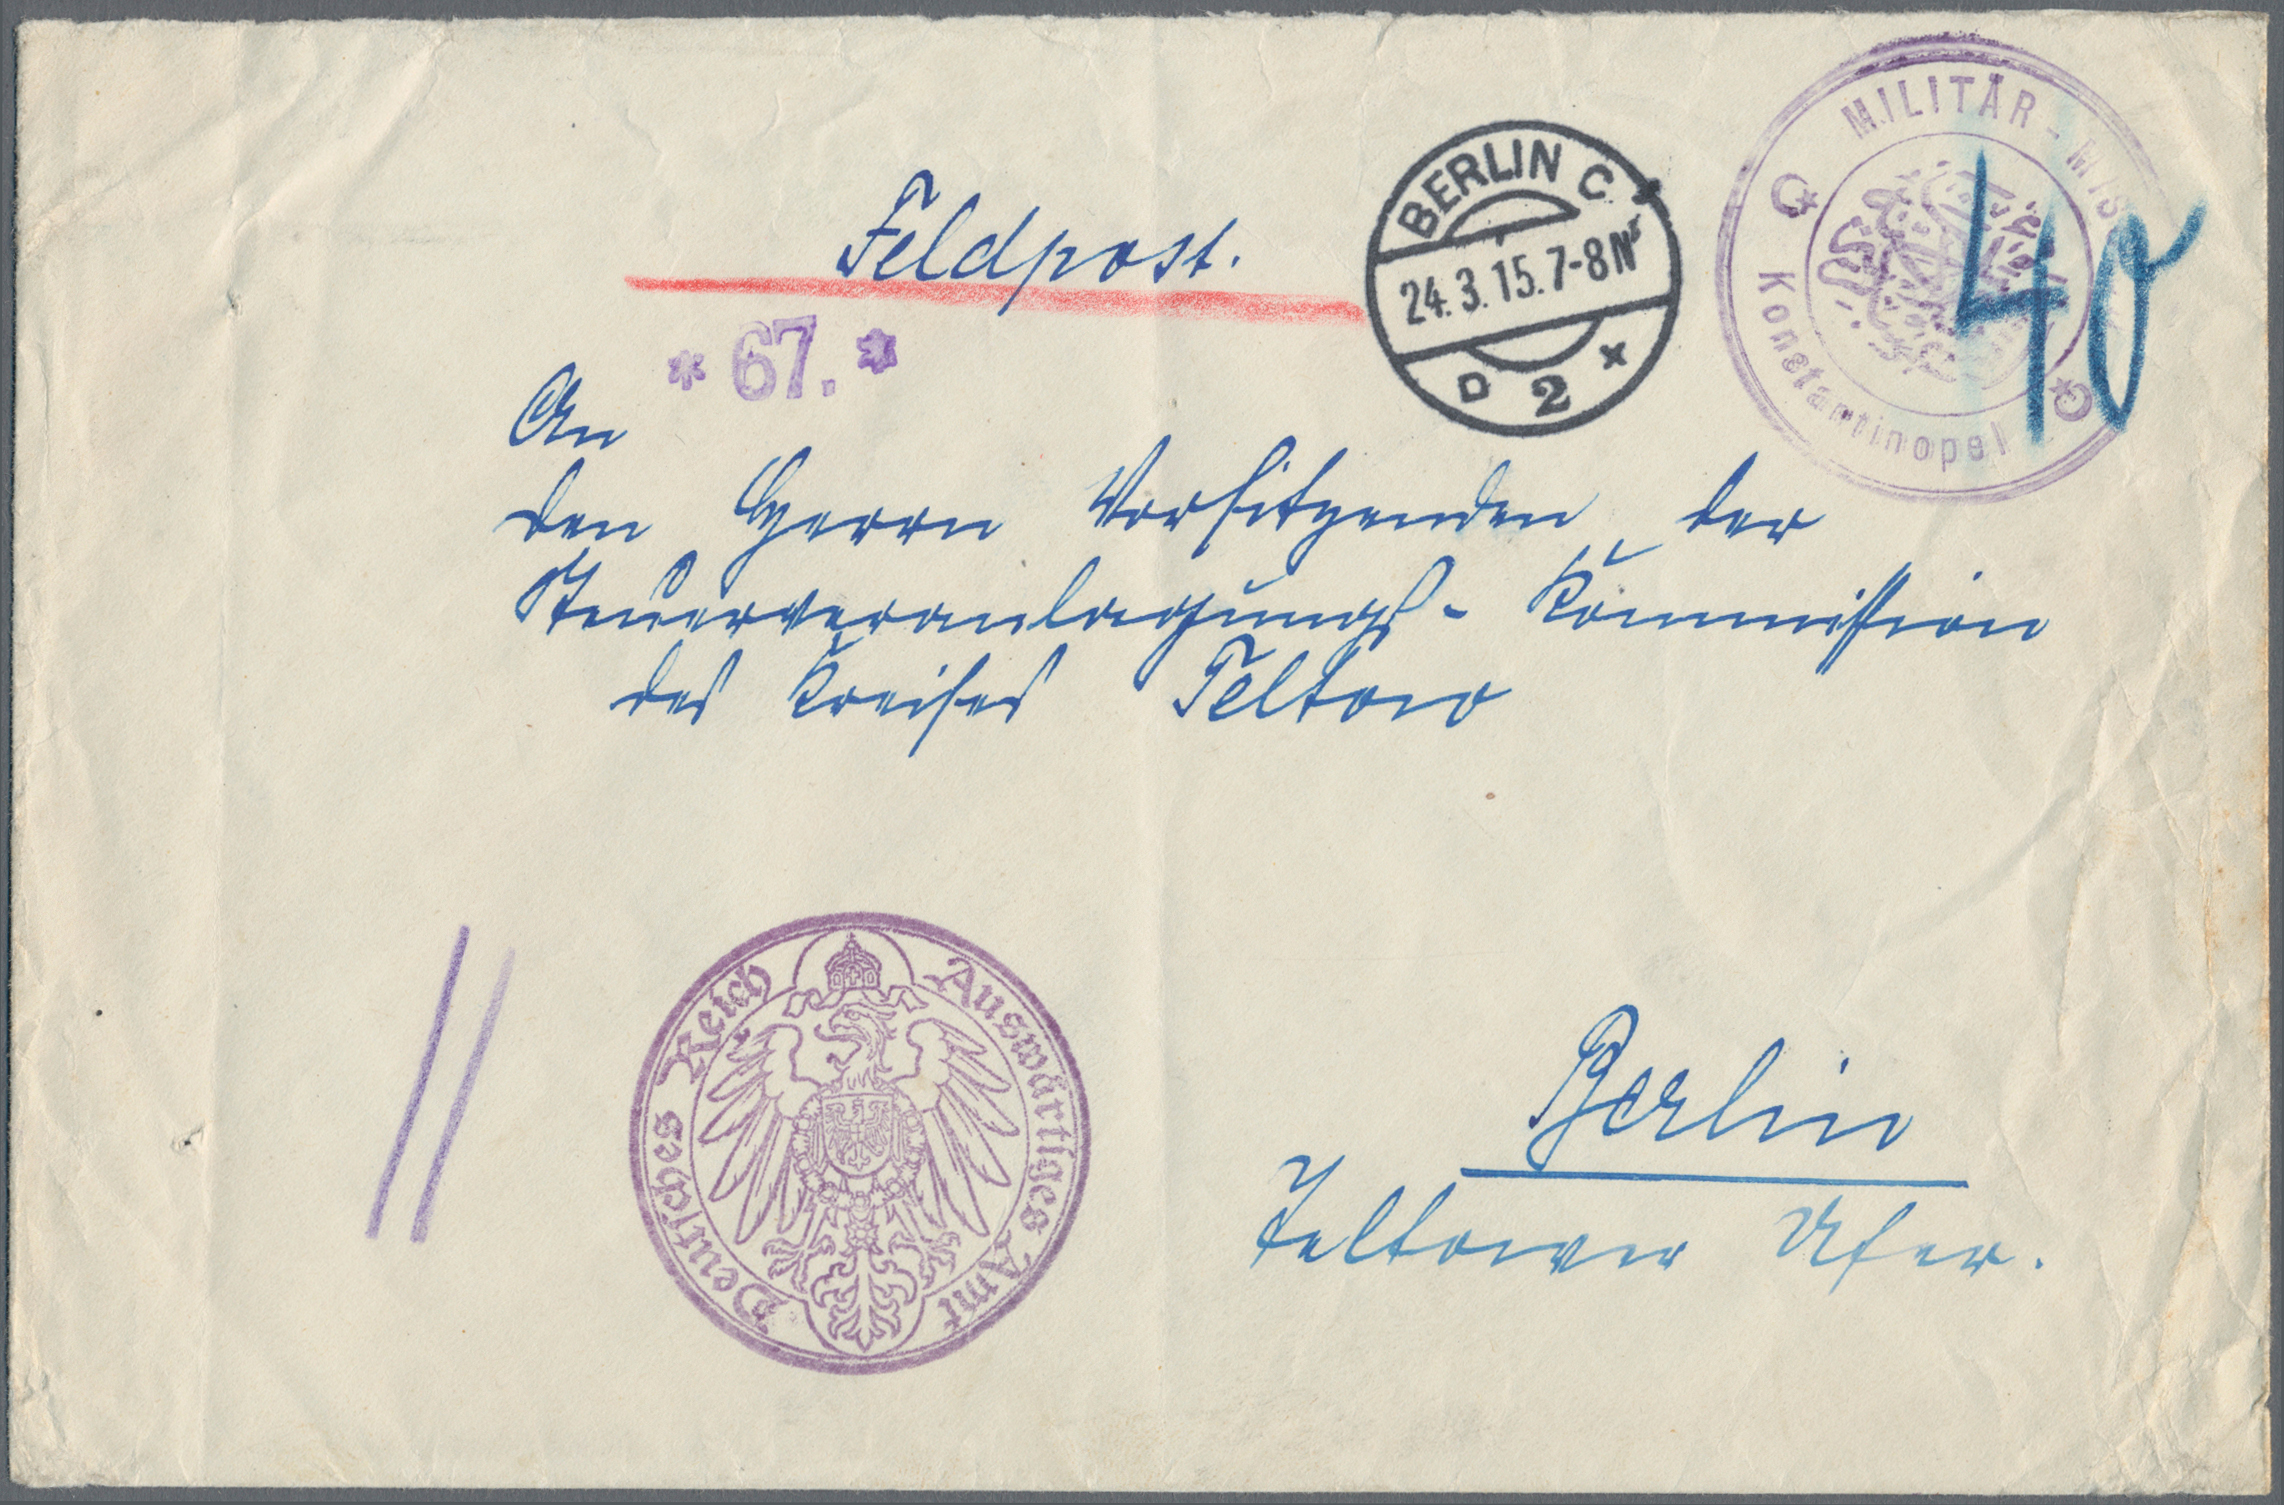 Feldpost.
* 67. *
BERLIN C
24.3.15.7-8N
D 2 x
MILITÄR-MIS
Konstantinopel
40
An
den Herrn Vorsitzenden der
Steuerveranlagungs-Kommission
des Kreises Teltow
Deutsches Reich Auswärtiges Amt
Berlin
Teltower Ufer.